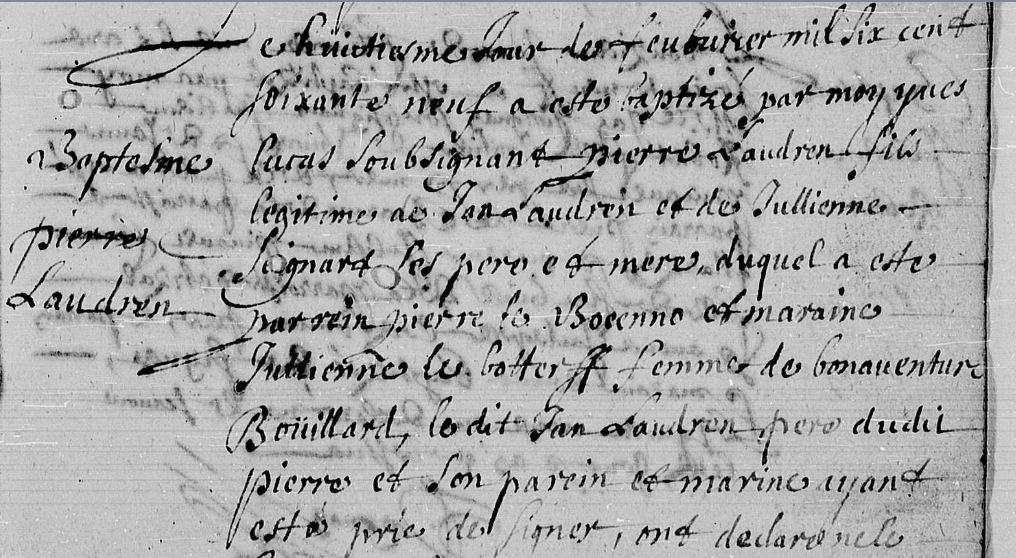 Baptesme
pierre
Laudren
e huictiesme Jour de feuburier mil six cent
soixante neuf a este baptizé par moy yves
lucas soubsignant pierre Laudren fils
legitime de Jan Laudren et de Jullienne
Seignard ses pere et mere, duquel a este
parrein pierre le Bocenno et maraine
Jullienne le botter femme de bonaventure
Boüillard, le dit Jan Laudren pere dudit
pierre et son parein et marine ayant
esté prie de signer, ont declare ne le